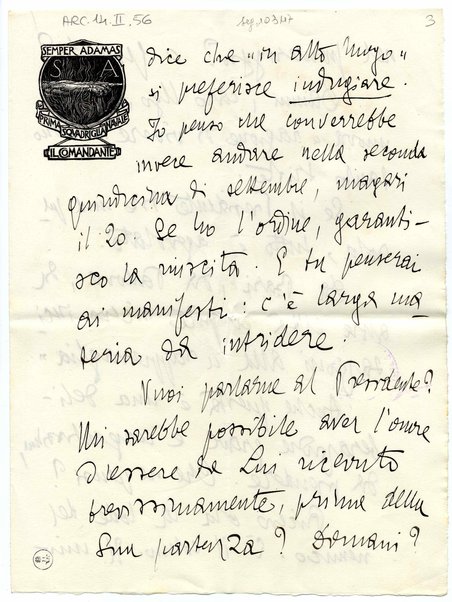 ARC. 14. II. 56
3
SEMPER ADAMAS
S A
PRIMA SQUADRIGLIA NAVALE
IL COMANDANTE
dice che "in alto luogo"
si preferisce indugiare.
Io penso che converrebbe
invece andare nella seconda
quindicina di settembre, magari
il 20. Se ho l'ordine, garanti-
sco la riuscita. E tu penserai
ai manifesti: c'è larga ma-
teria da intridere.
Vuoi parlarne al Presidente?
Mi sarebbe possibile aver l'onore
d'essere da Lui ricevuto
brevissimamente, prima della
Sua partenza? Domani?